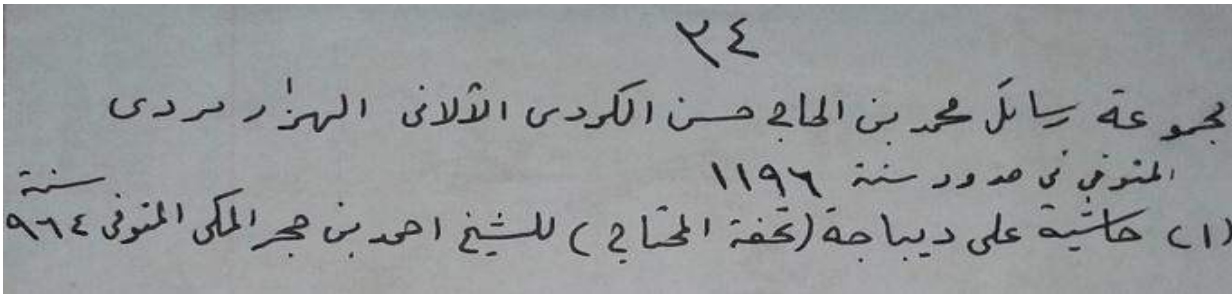 ٣٤
مجموعة رسائل محمد بن الحاج حسن الكردى الآلانى الهزار مردى
المتوفى فى حدود سنة ١١٩٦
(١) حاشية على ديباجة (تحفة المحتاج) للشيخ احمد بن حجر المكى المتوفى سنة ٩٦٤